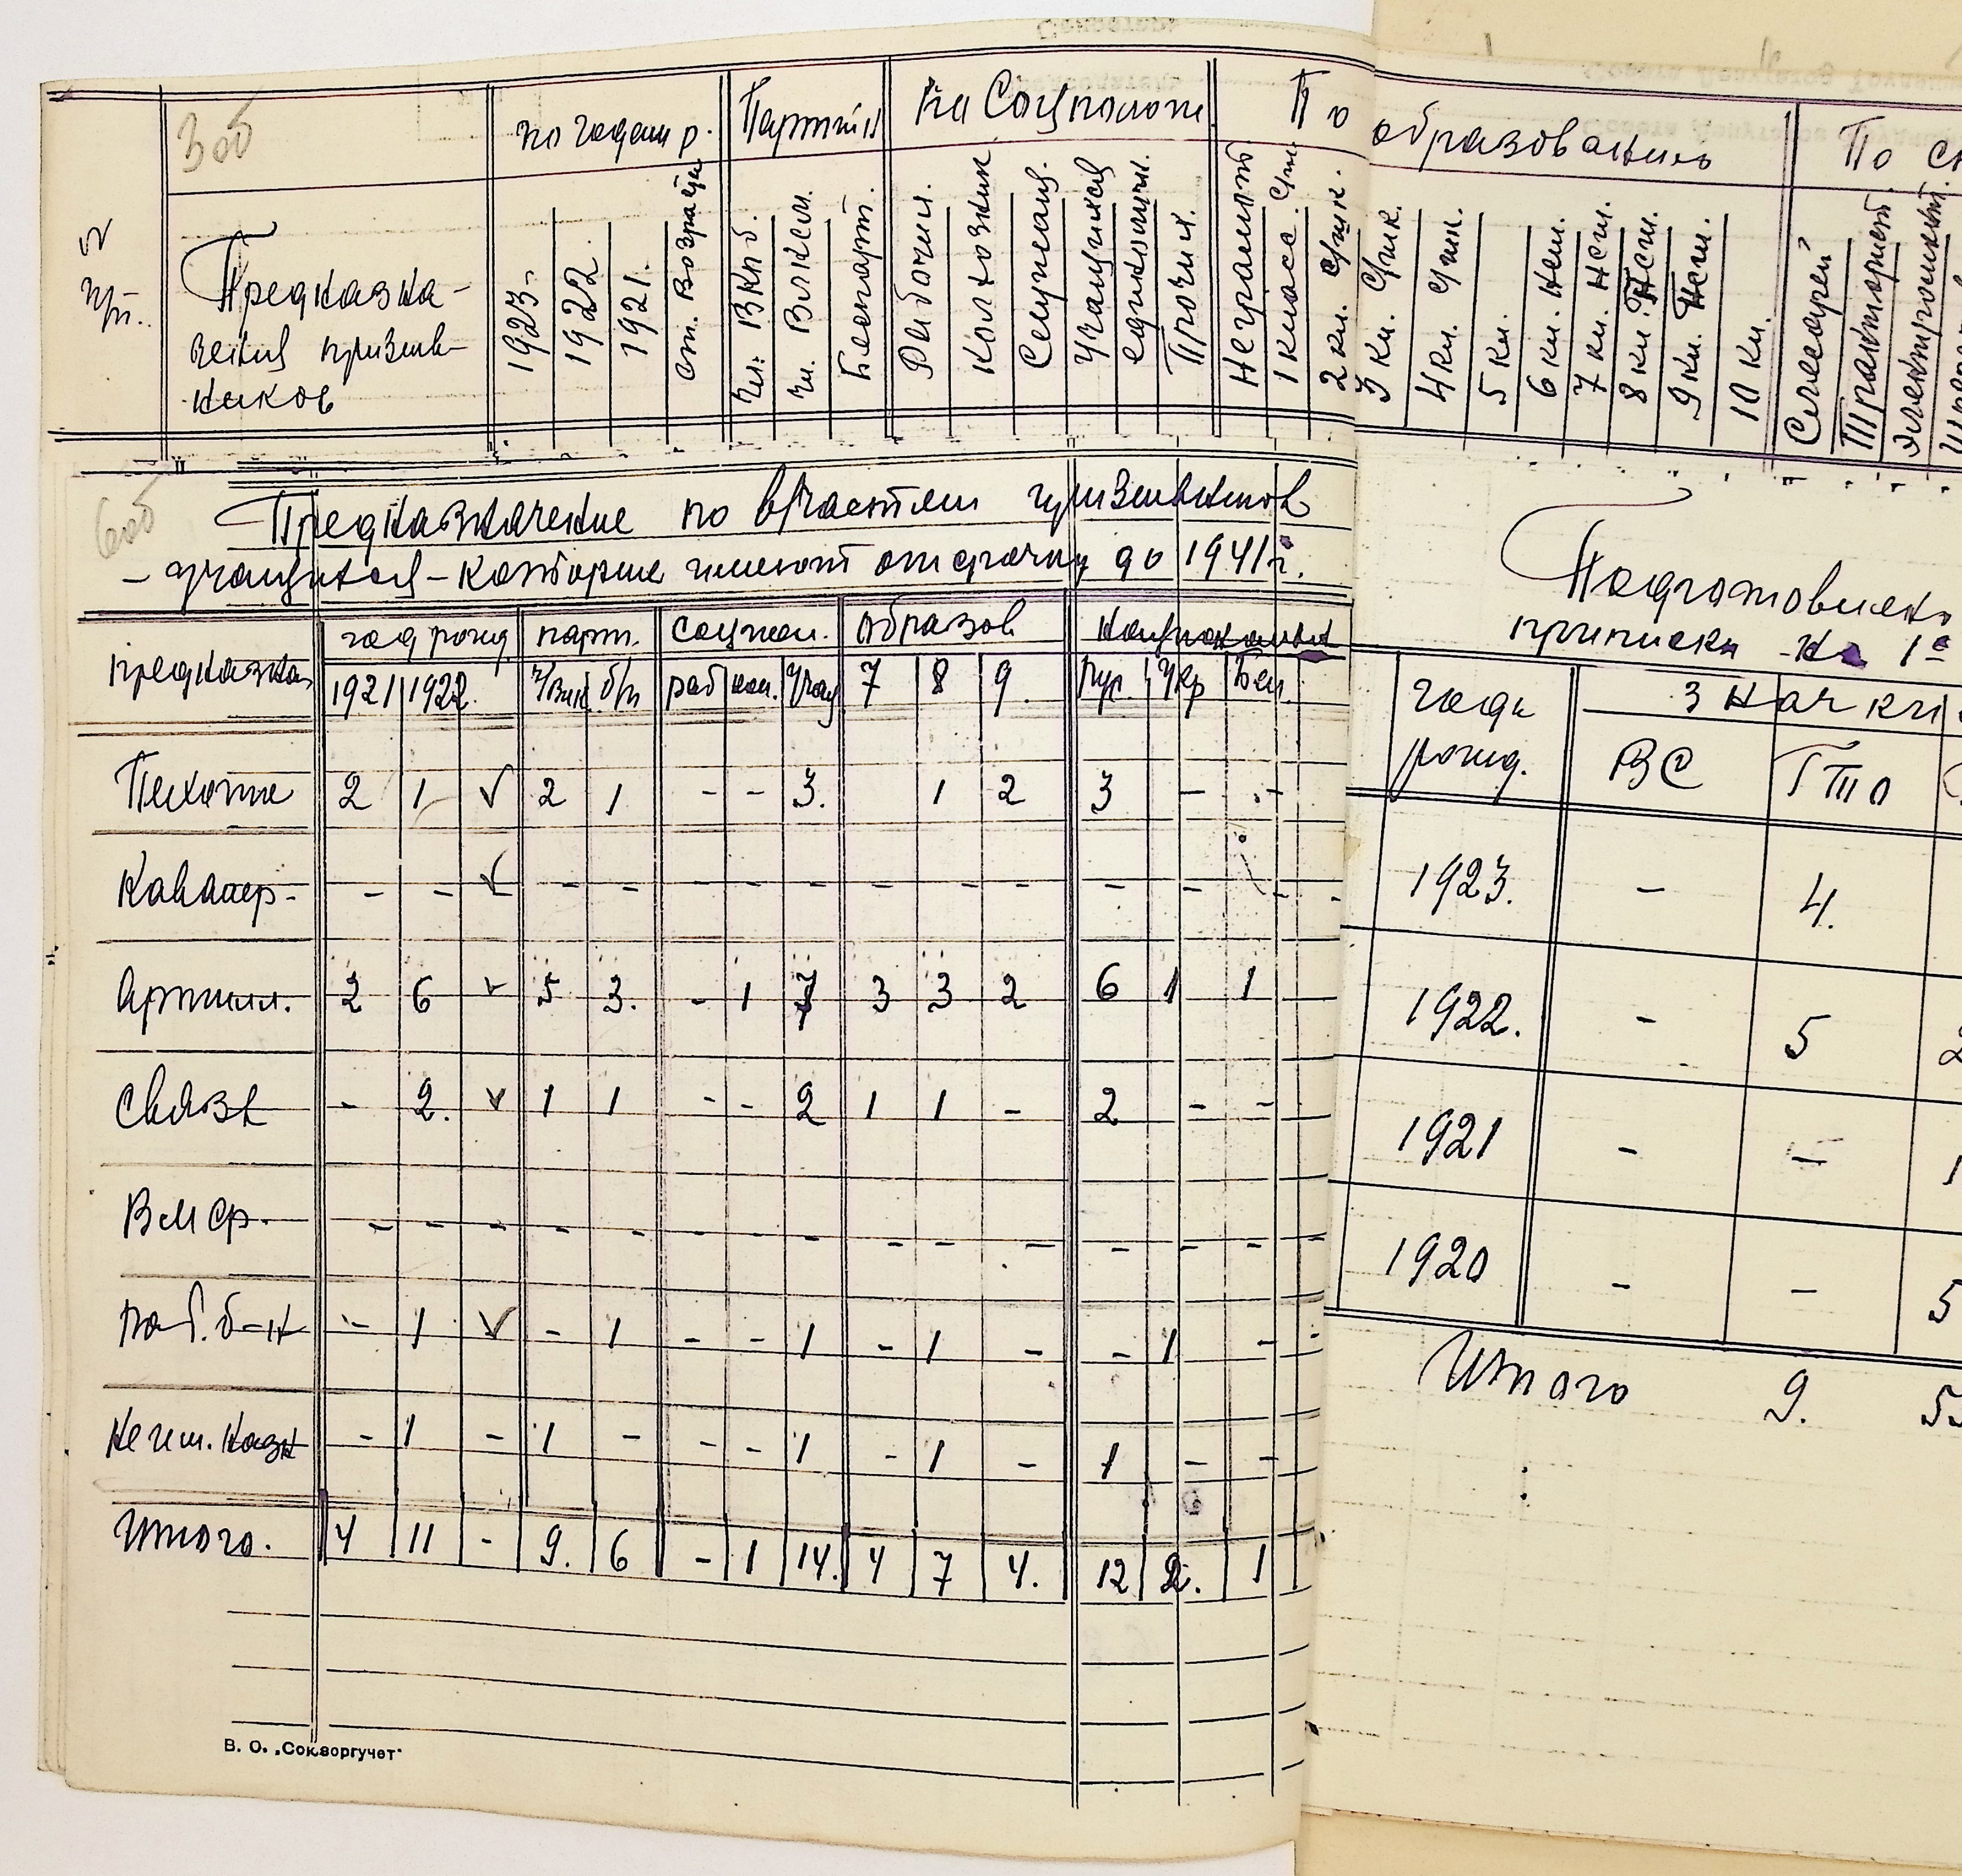 3об
по годам р.
Партийн
На Соцположен.
По
образованию
По сп
№
пп.
Предназна-
чения призыв-
ников
1923-
1922.
1921.
ст. Возраста
Чл. ВКПб.
Чл. ВЛКСМ.
Беспарт.
Рабочих.
Колхозник
Служащ.
Учащихся
единоличн.
Прочих.
Неграмот
1 класс. с/шк.
2 кл. с/шк.
3 кл. с/шк.
4 кл. с/шк.
5 кл.
6 кл. нсш.
7 кл. нсш.
8 кл. нсш.
9 кл. нсш.
10 кл.
Слесарей
Тракторист.
6об
Предназначение по в/частям призывников
- учащихся - которые имеют отсрочку до 1941 г.
предназнач
год рожд
парт.
соцпол.
образов
национальн
1921 1922. ч/влк б/п раб кол. учащ 7 8 9. рус. укр бел.
Пехота 2 1 ✓ 2 1 - - 3. 1 2 3 - -
Кавалер- - - ✓ - - - - - - - - - - -
Артилл. 2 6 ✓ 5 3. - 1 7 3 3 2 6 1 1
Связь - 2. ✓ 1 1 - - 2 1 1 - 2 - -
ВМФ. - - - - - - - - - - - - - -
раб. б-н - 1 ✓ - 1 - - 1 - 1 - - 1 -
Не им. назн - 1 - 1 - - - 1 - 1 - 1 - -
Итого. 4 11 - 9. 6 - 1 14. 4 7 4. 12 2. 1
В. О. „Союзоргучет"
Подготовлен
приписки на 1е
годы
рожд.
значки
ВС ГТО
1923. - 4.
1922. - 5 2
1921 - - 1
1920 - - 5
Итого 9.